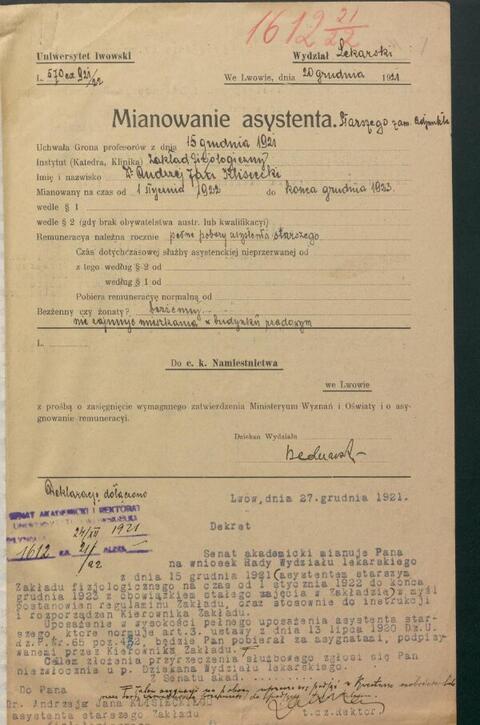 1612 21/22
Uniwersytet lwowski Wydział Lekarski
L. 570 ex 921/22 We Lwowie, dnia 20 grudnia 1921
Mianowanie asystenta. starszego zam. Adjunkta
Uchwała Grona profesorów z dnia 15 grudnia 1921
Instytut (Katedra, Klinika) Zakład Fizjologiczny
Imię i nazwisko Dr Andrzej Jan Klisiecki
Mianowany na czas od 1 stycznia 1922 do końca grudnia 1923.
wedle § 1
wedle § 2 (gdy brak obywatelstwa austr. lub kwalifikacyi)
Remuneracya należna rocznie pełne pobory asystenta starszego
Czas dotychczasowej służby asystenckiej nieprzerwanej od
z tego według § 2 od
według § 1 od
Pobiera remuneracyę normalną od
Bezżenny czy żonaty? bezżenny
nie zajmuje mieszkania w budynku rządowym
L.
Do c. k. Namiestnictwa
we Lwowie
z prośbą o zasięgnięcie wymaganego zatwierdzenia Ministeryum Wyznań i Oświaty i o asy-
gnowanie remuneracyi.
Dziekan Wydziału
Deklarację dołączono
SENAT AKADEMICKI I REKTORAT
24/XII 1921
1612 21/22
Lwów, dnia 27. grudnia 1921.
Dekret
Senat akademicki mianuje Pana
na wniosek Rady Wydziału lekarskiego
z dnia 15 grudnia 1921 (asystentem starszym
Zakładu fizjologicznego na czas od 1 stycznia 1922 do końca
grudnia 1923 z obowiązkiem stałego zajęcia w Zakładzie) w myśl
postanowień regulaminu Zakładu, oraz stosownie do instrukcji
i rozporządzeń Kierownika Zakładu.
Uposażenie w wysokości pełnego uposażenia asystenta star-
szego, które normuje art. 3. ustawy z dnia 13 lipca 1920 Dz. U.
R.z.P. Nr. 65 poz. 432 będzie Pan pobierał za asygnatami, podpisy-
wanemi przez Kierownika Zakładu.
Celem złożenia przyrzeczenia służbowego zgłosi się Pan
niezwłocznie u p. Dziekana Wydziału lekarskiego.
Z Senatu akad.
Do Pana
Dr. Andrzeja Jana KLISIECKIEGO
asystenta starszego Zakładu t.cz. Rektor.